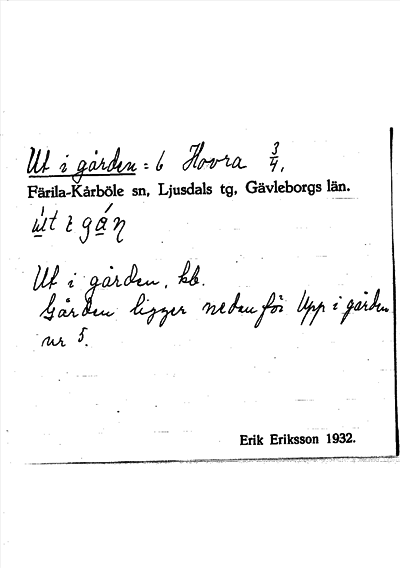 Ut i gården = 6 Hovra 3/4.
Färila-Kårböle sn, Ljusdals tg, Gävleborgs län.
Ut i gården, kb.
Gården ligger nedanför Upp i gården
nr 5.
Erik Eriksson 1932.